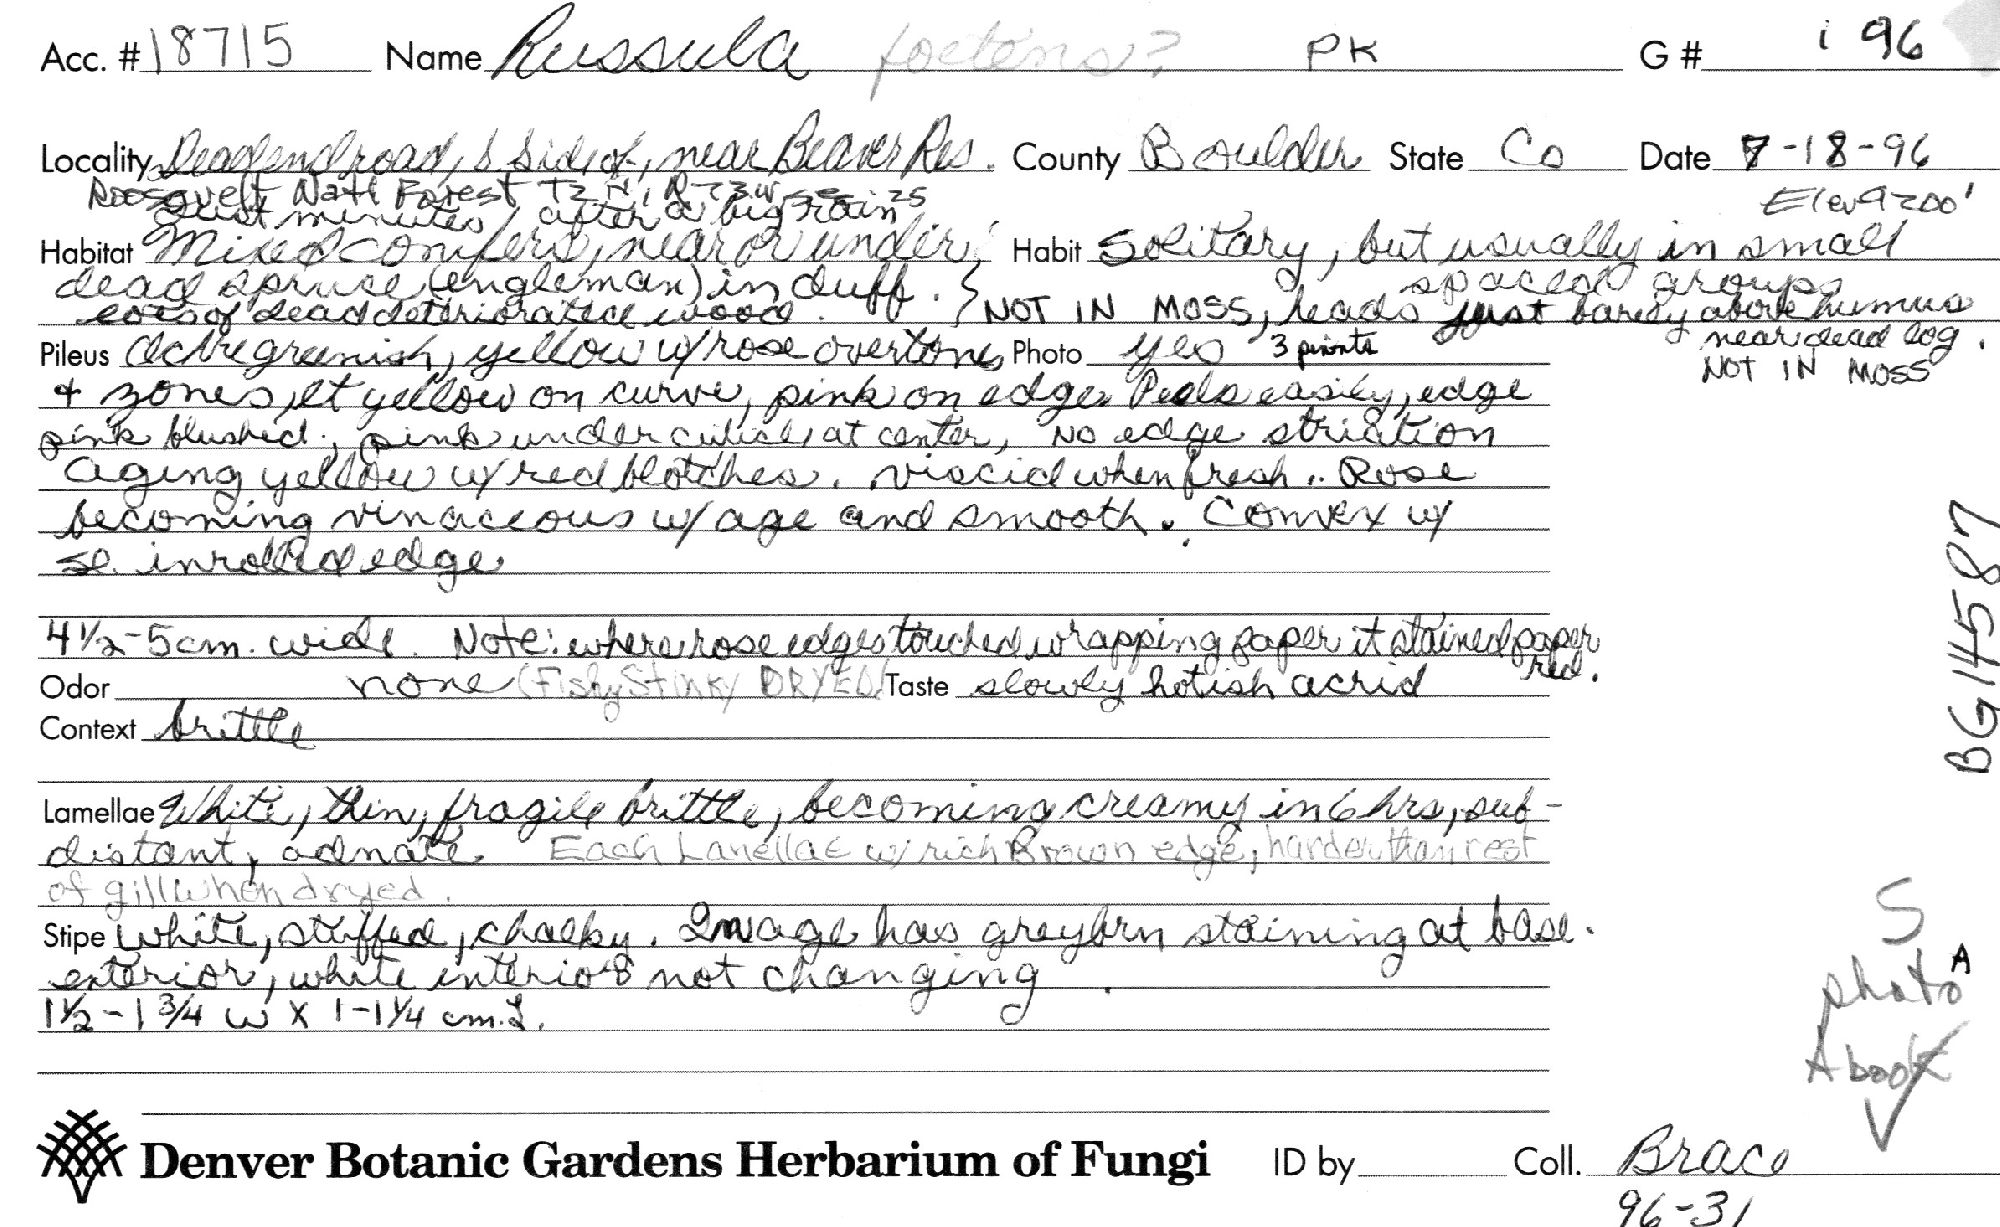 Acc. # 18715 Name Russula foetens? PK G # i 96
Locality Deadend road, S Side of, near Beaver Res. County Boulder State Co Date 7-18-96
Roosevelt Natl Forest T2 N, R 73W 25 Elev 9200'
Just minutes after a big rain
Habitat Mixed conifers, near or under Habit Solitary, but usually in small
dead spruce (engleman) in duff. spaced groups
of dead deteriorated wood. NOT IN MOSS, heads just barely above humus
near dead log.
NOT IN MOSS
Pileus Ochre greenish, yellow w/ rose overtones Photo yes 3 private
+ zones, lt yellow on curve, pink on edge. Peels easily, edge
pink blushed, pink under cuticle at center, No edge striation
aging yellow w/ red blotches. viscid when fresh.. Rose
becoming vinaceous w/ age and smooth. Convex w/
sl. inrolled edge
4 1/2-5cm. wide. Note: where rose edges touched wrapping paper it stained paper
red.
Odor none (Fishy Stinky DRYED) Taste slowly hotish acrid
Context brittle
Lamellae White, thin, fragile brittle, becoming creamy in 6 hrs, sub-
distant, adnate. Each Lamellae w/ rich Brown edge, harder than rest
of gill when dryed.
Stipe White, stuffed, chalky. In age has greybrn staining at base.
exterior, white interior not changing.
1 1/2 - 1 3/4 w X 1-1 1/4 cm. L.
BG 14587
S
photo A
A book
Denver Botanic Gardens Herbarium of Fungi ID by Coll. Brace
96-31